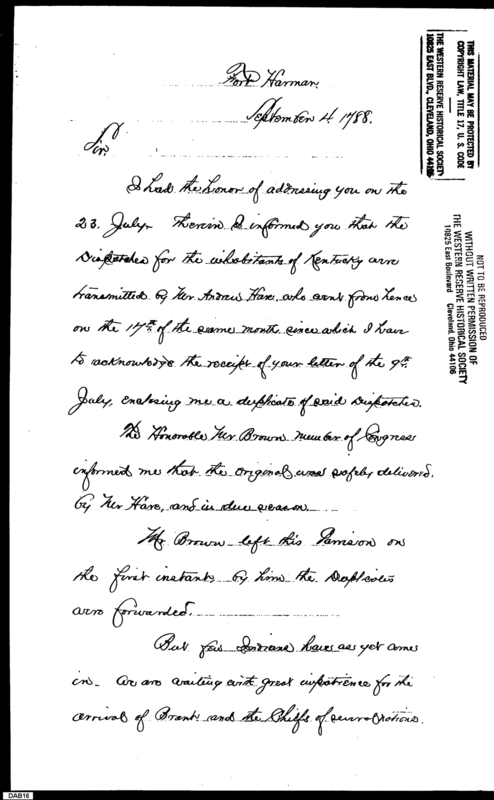 Fort Harmar.
September 4. 1788.
Sir.
I had the honor of addressing you on the
23. July. therein I informed you that the
Dispatches for the inhabitants of Kentucky were
transmitted by Mr Andrew Hare, who went from hence
on the 17th of the same month since which I have
to acknowledge the receipt of your letter of the 9th
July, enclosing me a duplicate of said Dispatches.
The Honorable Mr Brown member of Congress
informed me that the original was safely delivered.
by Mr Hare, and in due season.
Mr Brown left this Garrison on
the first instant, by him the Duplicates
were forwarded.
But few Indians have as yet come
in. We are waiting with great impatience for the
arrival of Brant and the Chiefs of several nations.
THIS MATERIAL MAY BE PROTECTED BY
COPYRIGHT LAW, TITLE 17, U. S. CODE
THE WESTERN RESERVE HISTORICAL SOCIETY
10825 EAST BLVD., CLEVELAND, OHIO 44106
NOT TO BE REPRODUCED
WITHOUT WRITTEN PERMISSION OF
THE WESTERN RESERVE HISTORICAL SOCIETY
10825 East Boulevard Cleveland, Ohio 44106
DAB16